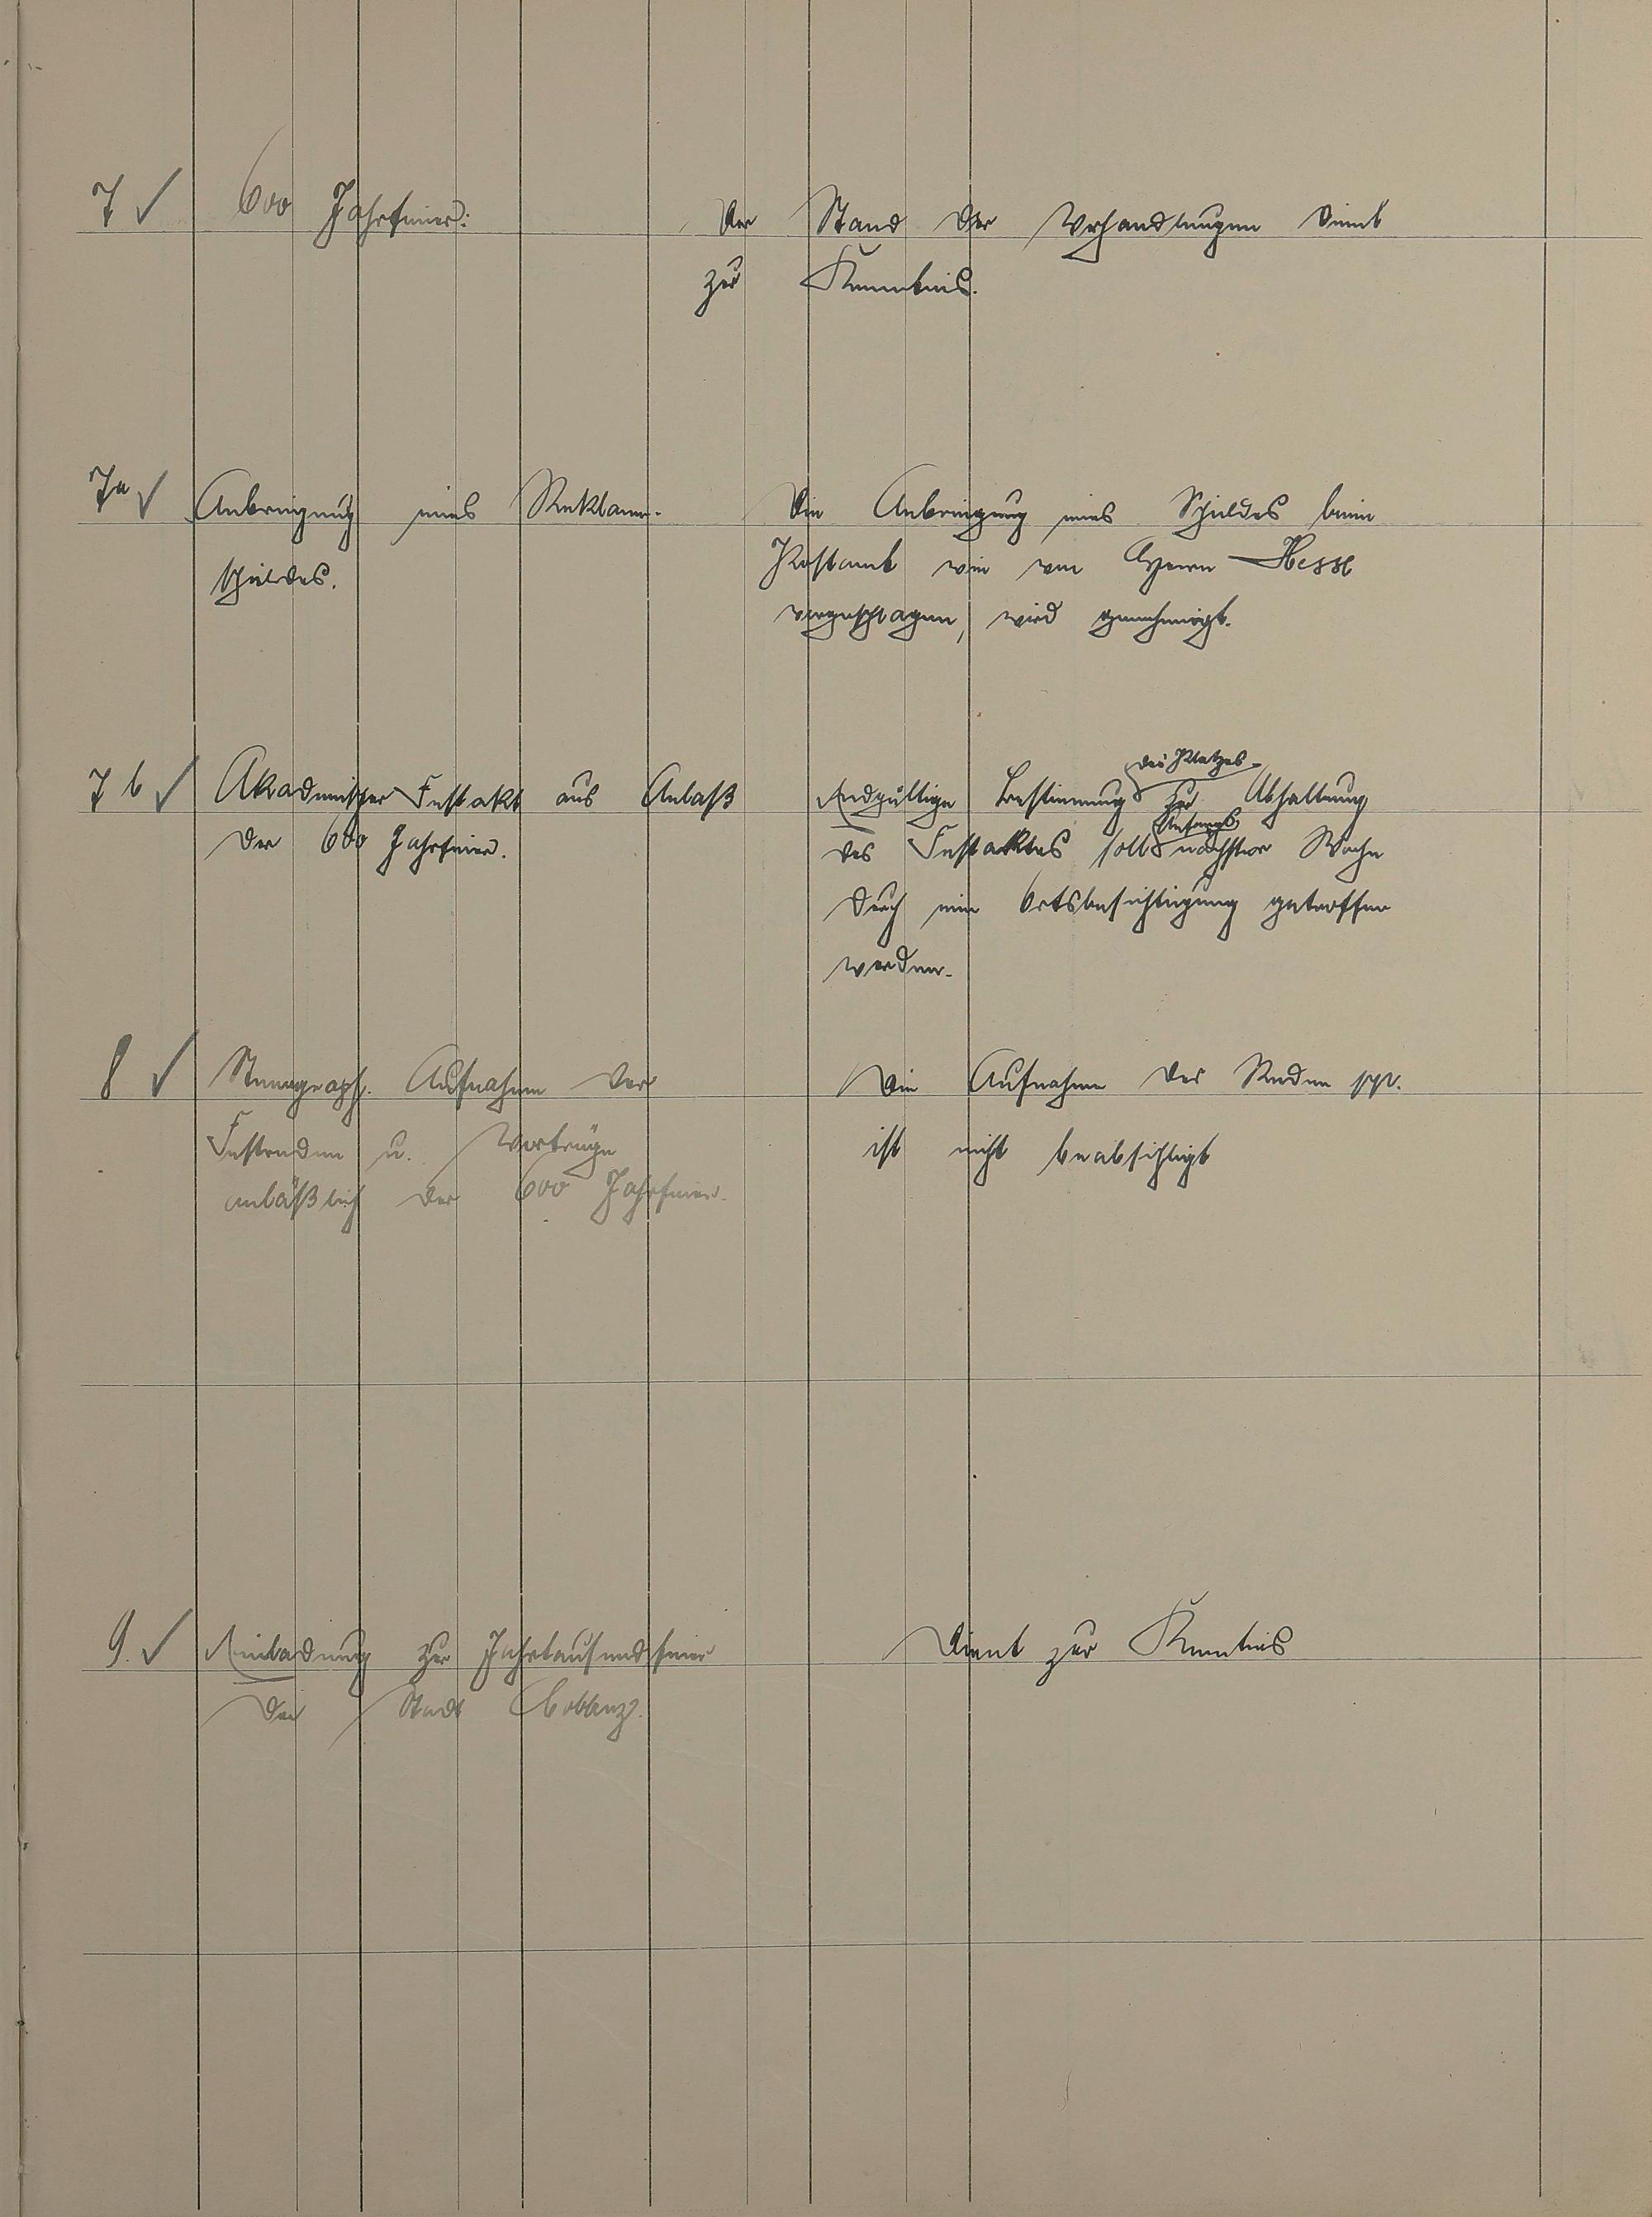 7 ✓ 600 Jahrfeier:
Der Stand der Verhandlungen dient
zur Kenntnis.
7a ✓ Anbringung eines Reklame-
schildes.
Die Anbringung eines Schildes beim
Postamt wie von Herrn Hesse
vorgeschlagen, wird genehmigt.
7b ✓ Akademischer Festakt aus Anlaß
der 600 Jahrfeier.
des Platzes
Endgültige Bestimmung zur Abhaltung
Anfangs
des Festaktes soll nächster Woche
durch eine Ortsbesichtigung getroffen
werden.
8 ✓ Stenograph. Aufnahme der
Festreden u. Vorträge
anläßlich der 600 Jahrfeier.
Die Aufnahme der Reden pp.
ist nicht beabsichtigt
9. ✓ Einladung zur Jahrtausendfeier
der Stadt Coblenz.
Dient zur Kenntnis